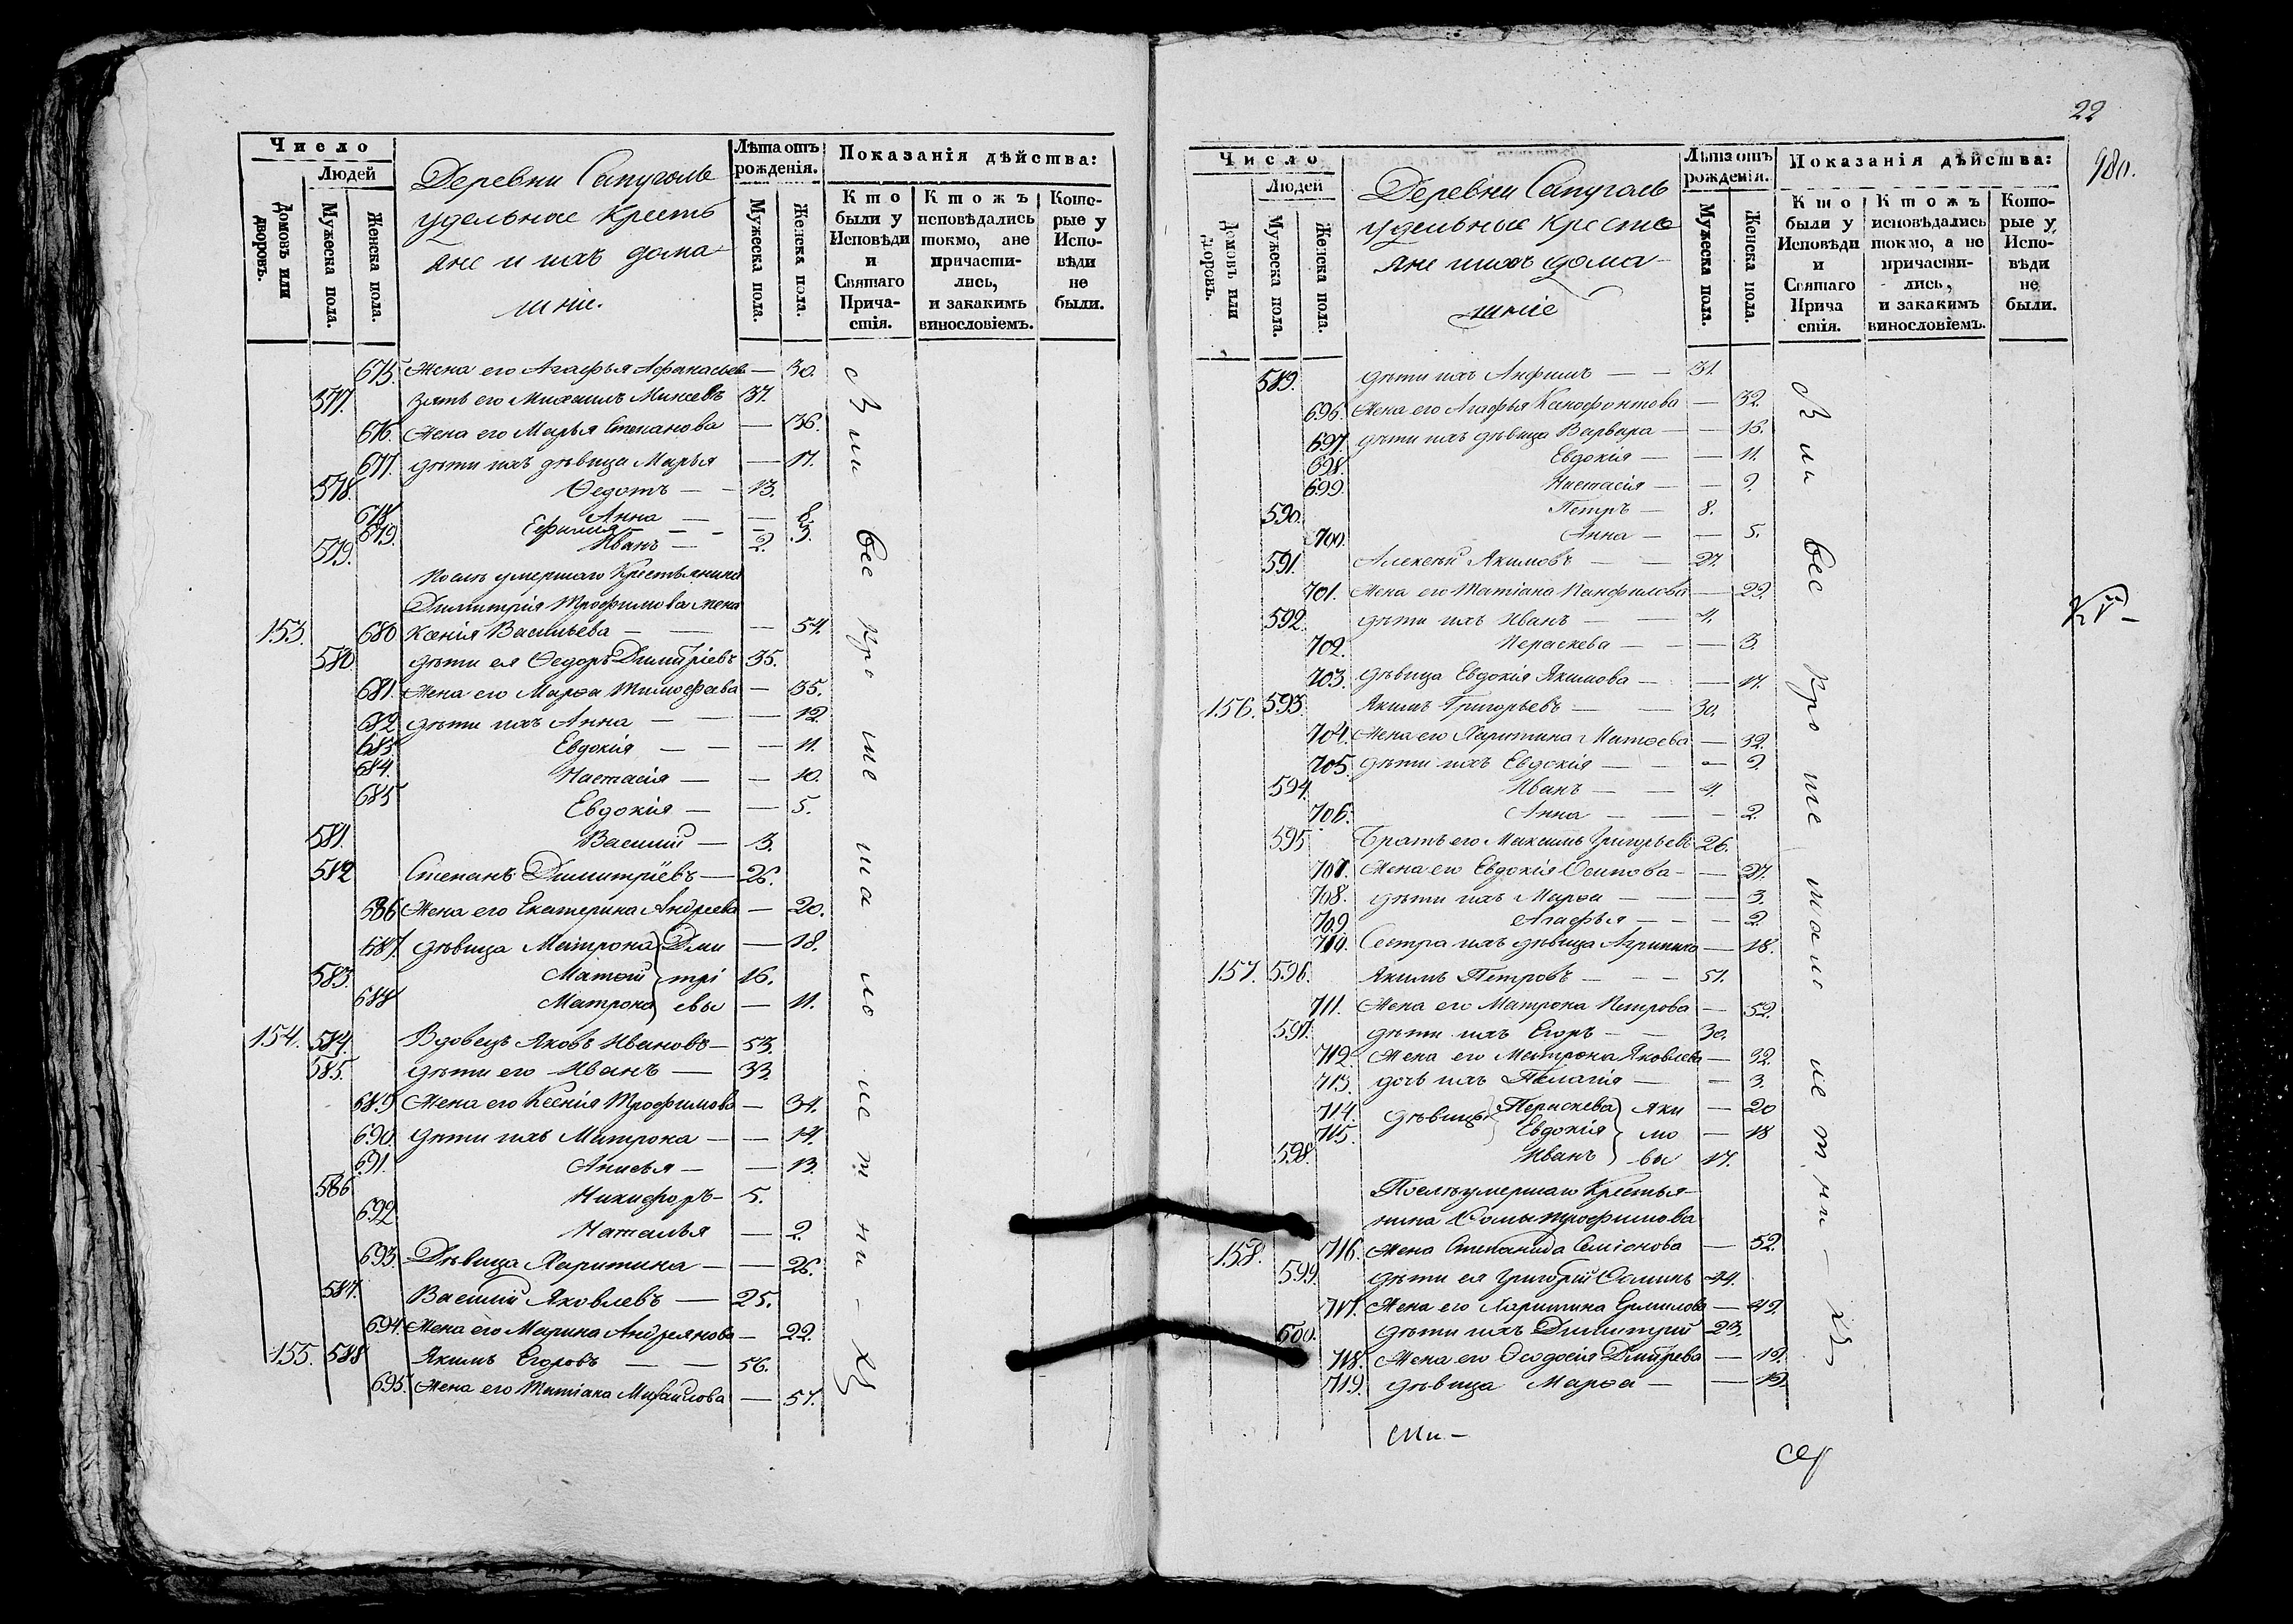 Число
Людей
Домовъ или дворовъ.
Мужеска пола.
Женска пола.
Деревни Сапуголь
удельные Кресть
яне и ихъ дома
шніе.
Лѣта отъ рожденія.
Мужеска пола.
Женска пола.
Показанія дѣйства:
Кто были у Исповѣди и Святаго Причастія.
Ктожъ исповѣдались токмо, а не причастились, и за какимъ винословіемъ.
Которые у Исповѣди не были.
675. Жена его Агафья Афанасьев — 30.
577. зять его Михаилъ Михеевъ 37.
676. Жена его Марья Степанова — 36.
677. дѣти ихъ дѣвица Марья — 17.
578. Ѳедотъ — 13.
678 Анна — 8.
679. Ефимия — 3.
579. Иванъ — 2.
После умершаго Крестьянина
Димитрія Трофимова жена
153. 680 Ксенія Васильева — 54.
580. дѣти ея Ѳедоръ Димитріевъ 35.
681. Жена его Марѳа Тимофеева — 35.
682 дѣти ихъ Анна — 12.
683 Евдокія — 11.
684. Настасія — 10.
685 Евдокія — 5.
581. Василий — 3.
582 Степанъ Димитріевъ — 26.
686 Жена его Екатерина Андреева — 20.
687. дѣвица Матрона Дми — 18.
583. Матвей трі 16.
688 Матрона евы — 11.
154. 584. Вдовецъ Яковъ Ивановъ — 53.
585. дѣти его Иванъ — 33.
689 Жена его Ксенія Трофимова — 34.
690. Дѣти ихъ Матрона — 14.
691. Анисья — 13.
586 Никифоръ — 5.
692 Наталья — 2.
693. Дѣвица Харитина — 26.
587. Василий Яковлевъ — 25.
694. Жена его Марина Андреянова — 22.
155. 588 Якимъ Егоровъ — 56.
695. Жена его Татіана Михайлова — 57.
22
980.
Число
Людей
Домовъ или дворовъ.
Мужеска пола.
Женска пола.
Деревни Сапуголь
удельные Кресть
яне и ихъ дома
шніе
Лѣта отъ рожденія.
Мужеска пола.
Женска пола.
Показанія дѣйства:
Кто были у Исповѣди и Святаго Причастія.
Ктожъ исповѣдались токмо, а не причастились, и за какимъ винословіемъ.
Которые у Исповѣди не были.
589. дѣти ихъ Анфимъ — 31.
696. Жена его Агафья Ксенофонтова — 32.
697. дѣти ихъ дѣвица Варвара — 16.
698. Евдокія — 11.
699. Настасія — 9.
590. Петръ — 8.
700. Анна — 5.
591. Алексѣй Якимовъ — 27.
701. Жена его Татіана Панфилова — 29.
592. дѣти ихъ Иванъ — 4.
702. Параскева — 3.
703. дѣвица Евдокія Якимова — 17.
156. 593. Якимъ Григорьевъ — 30.
704. Жена его Харитина Матѳеева — 32.
705. дѣти ихъ Евдокія — 9.
594. Иванъ — 4.
706. Анна — 2.
595 Братъ его Максимъ Григорьевъ 26.
707. Жена его Евдокія Осипова — 27.
708. дѣти ихъ Марѳа — 3.
709 Агафья — 2.
710. Сестра ихъ дѣвица Агрипина — 18.
157. 596. Якимъ Петровъ — 51.
711. Жена его Матрона Петрова — 52.
597. дѣти ихъ Егоръ — 30.
712. Жена его Матрона Яковлева — 32.
713. дочь ихъ Пелагія — 3.
714. дѣвицы Параскева Яки — 20
715. Евдокія мо — 18
598. Иванъ вы 17.
После умершаго Крестья
нина Ѳомы Трофимова
158. 716. Жена Степанида Семіонова — 52.
599. дѣти ея Григорій Ѳоминъ 44.
717. Жена его Харитина Ермилова — 42.
600. дѣти ихъ Димитрий 23.
718. Жена его Ѳеодосія Дмитрева — 19.
719. дѣвица Марѳа — 13.